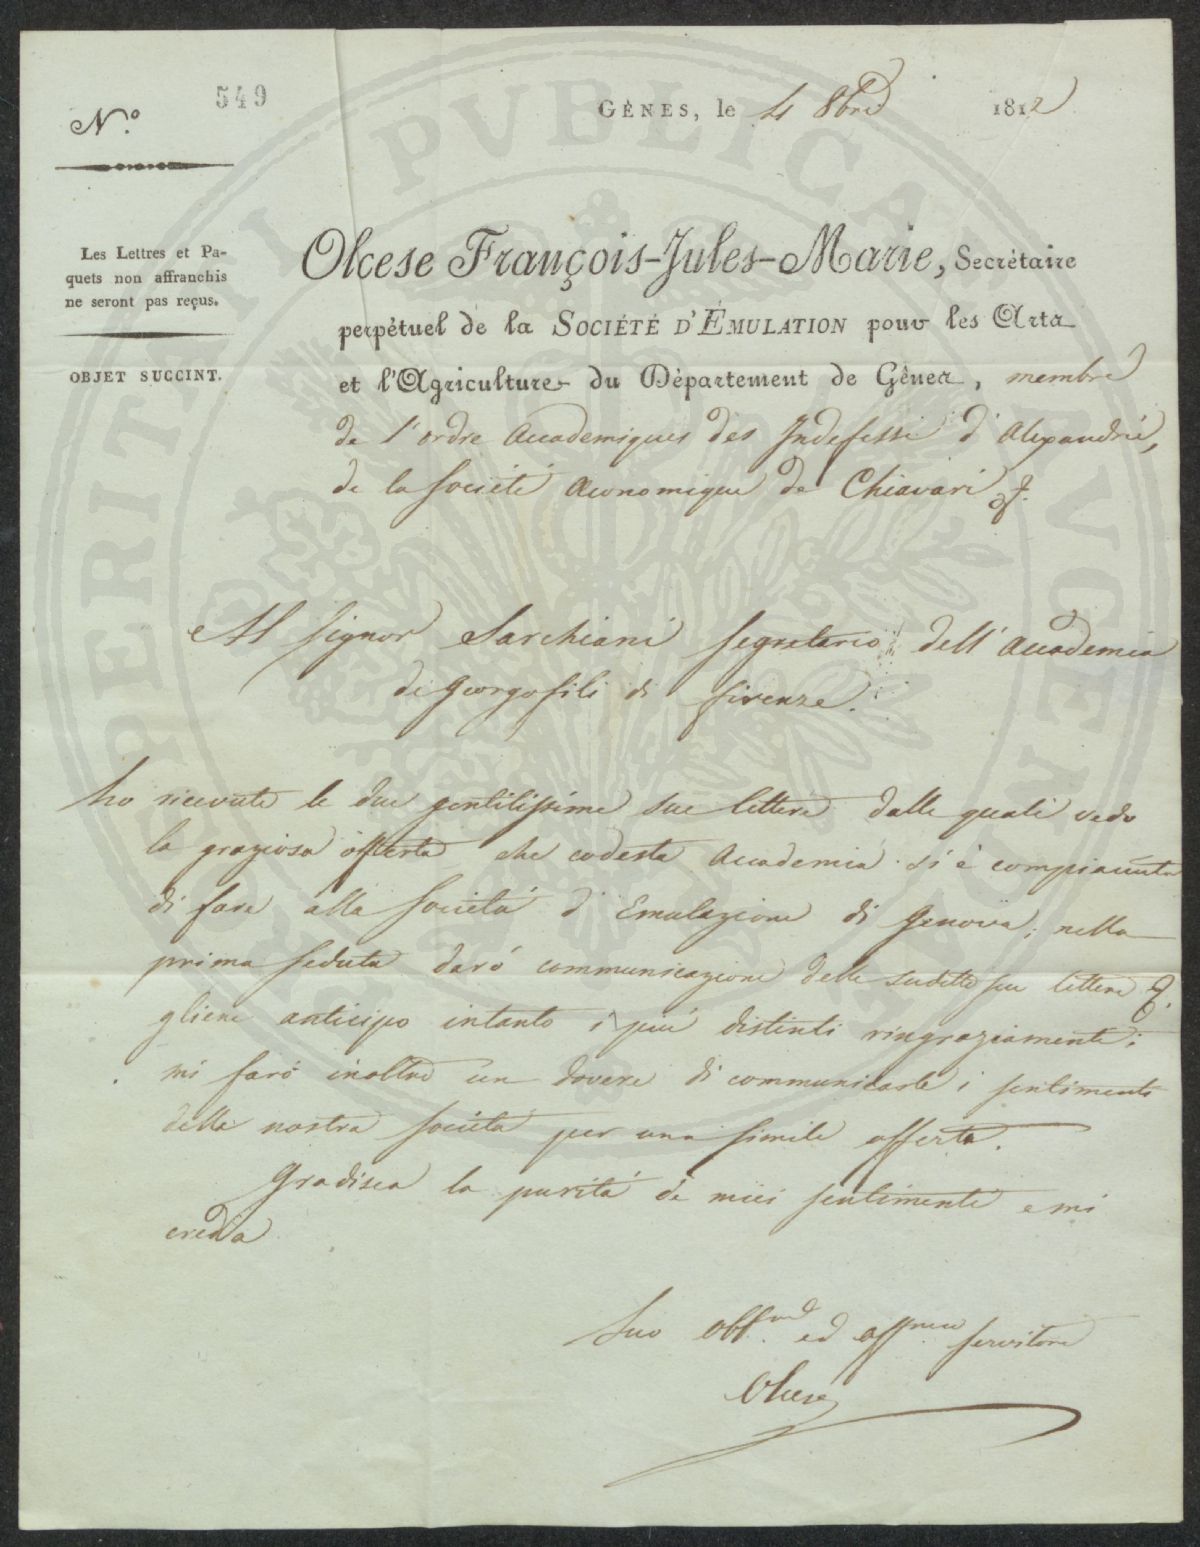 549
N.º
GÈNES, le 4 8bre 1812
Les Lettres et Pa-
quets non affranchis
ne seront pas reçus.
OBJET SUCCINT.
Olcese François-Jules-Marie, Secrétaire
perpétuel de la SOCIÉTÉ D'ÉMULATION pour les Arts
et l'Agriculture du Département de Gênes, membre
de l'ordre Academiques des Indefessi d'Alexandrie,
de la Societé Œconomique de Chiavari &.
Al Signor Sarchiani Segretario dell'Accademia
de Georgofili di Firenze.
ho ricevute le due gentilissime sue lettere dalle quali vedo
la graziosa offerta che codesta Accademia si è compiaciuta
di fare alla Società d'Emulazione di Genova; nella
prima seduta darò communicazione delle sudette sue lettere &.
gliene anticipo intanto i più distinti ringraziamenti;
mi farò inoltre un dovere di communicarle i sentimenti
della nostra Società per una simile offerta.
Gradisca la purità de miei sentimenti e mi
creda
Suo Obb.mo ed aff.mo servitore
Olcese
PERITAT I PVBLICAE AVGENDAE